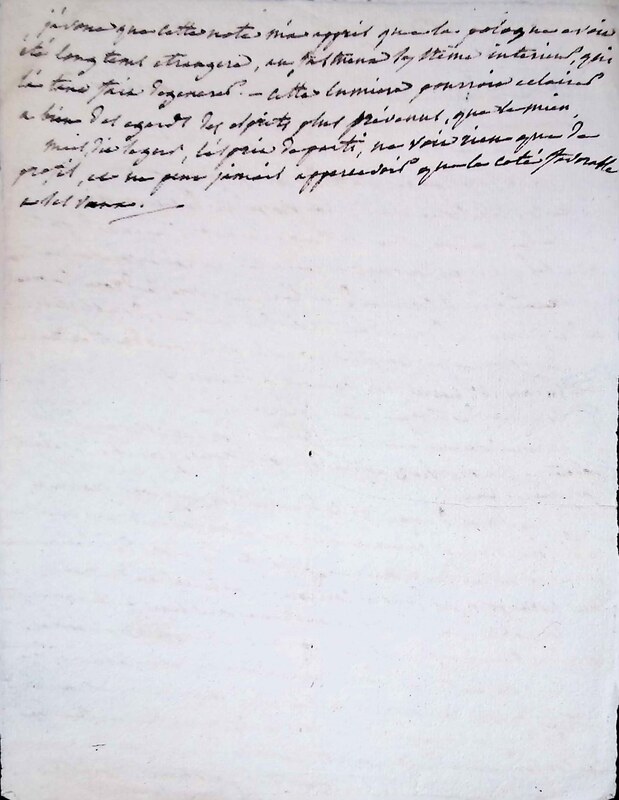 j'avoue que cette note m'a appris que la pologne avoit
été longtems etrangere, au système interieur, qui
l'a tant fait degenerer. — cette lumiere pourroit eclairer
a bien des egards des esprits plus prévenus, que le mien,
l'esprit de parti, ne voit rien que de
profil, et ne peut jamais appercevoir que le coté favorable
a ses vues.